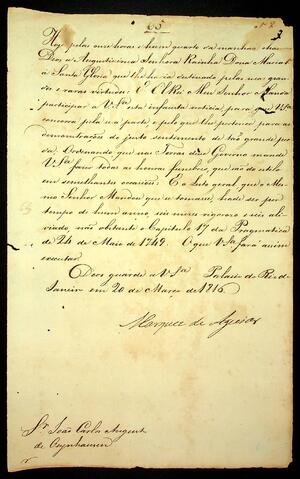 65
3
Hoje pelas onze horas e hum quarto da manhãa chamou
Deos a Augustissima Senhora Rainha Dona Maria I
á Santa Gloria, que lhe havia destinado pelas suas gran-
des e raras virtudes. E El Rei Meu Senhor Manda
participar a V.S.ª esta infausta noticia para que V.S.ª
concorra pela sua parte, e pelo que lhe pertence, para as
demonstrações do justo sentimento de tão grande per-
da. Ordenando que nas Terras do seu Governo mande
V.S.ª fazer todas as honras funebres, que são do estilo
em semelhantes occasiões. E o Luto geral, que o Mes-
mo Senhor Mandou que se tomasse, hade ser por
tempo de hum anno, seis mezes rigoroso e seis ali-
viado, não obstante o Capitulo 17 da Pragmatica
de 24 de Maio de 1749. O que V.S.ª fará assim
executar.
Deos guarde a V.S.ª Palacio do Rio de
Janeiro em 20 de Março de 1816.
Marquez de Aguiar
S.r João Carlos Augusto
de Oeynhausen